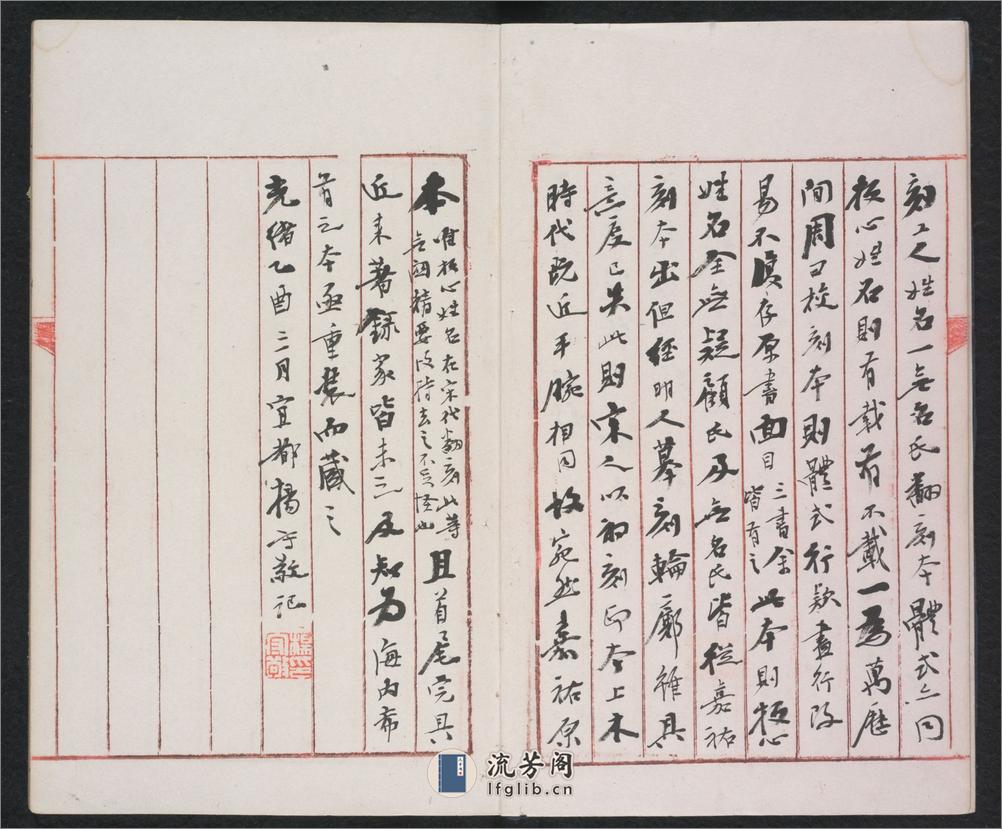 刻工之姓名一無名氏翻刻本體式亦同
板心姓名則有載有不載一爲萬曆
間周曰校刻本則體式行款盡行改
易不復存原書面目三書余皆有之此本則板心
姓名全無疑顧氏及無名氏皆從嘉祐
刻本出但經明人摹刻輪廓雖具
意度已失此則宋人以初刻印本上木
時代既近手腕相同故宛然嘉祐原
本唯板心姓名在宋代翻刻此等無關精要故特去之不足怪也且首尾完具
近來著錄家皆未之及知爲海內希
有之本亟重裝而藏之
光緒乙酉三月宜都楊守敬記
流芳阁
lfglib.cn